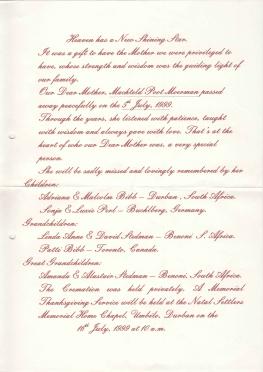 Heaven has a New Shining Star.
It was a gift to have the Mother we were privileged to
have, whose strength and wisdom was the guiding light of
our family.
Our Dear Mother, Mechteld Poot Moerman passed
away peacefully on the 5th July, 1999.
Through the years, she listened with patience, taught
with wisdom and always gave with love. That's at the
heart of who our Dear Mother was, a very special
person.
She will be sadly missed and lovingly remembered by her
Children:
Adriana & Malcolm Bibb – Durban, South Africa.
Sonja & Perl – Buchlberg, Germany.
Grandchildren:
Linda Anne & David Stedman – Benoni S. Africa.
Patti Bibb – Toronto, Canada.
Great Grandchildren:
Amanda & Alastair Stedman – Benoni, South Africa.
The Cremation was held privately. A Memorial
Thanksgiving Service will be held at the Natal Settlers
Memorial Home Chapel, Umbilo, Durban on the
16th July, 1999 at 10 a.m.